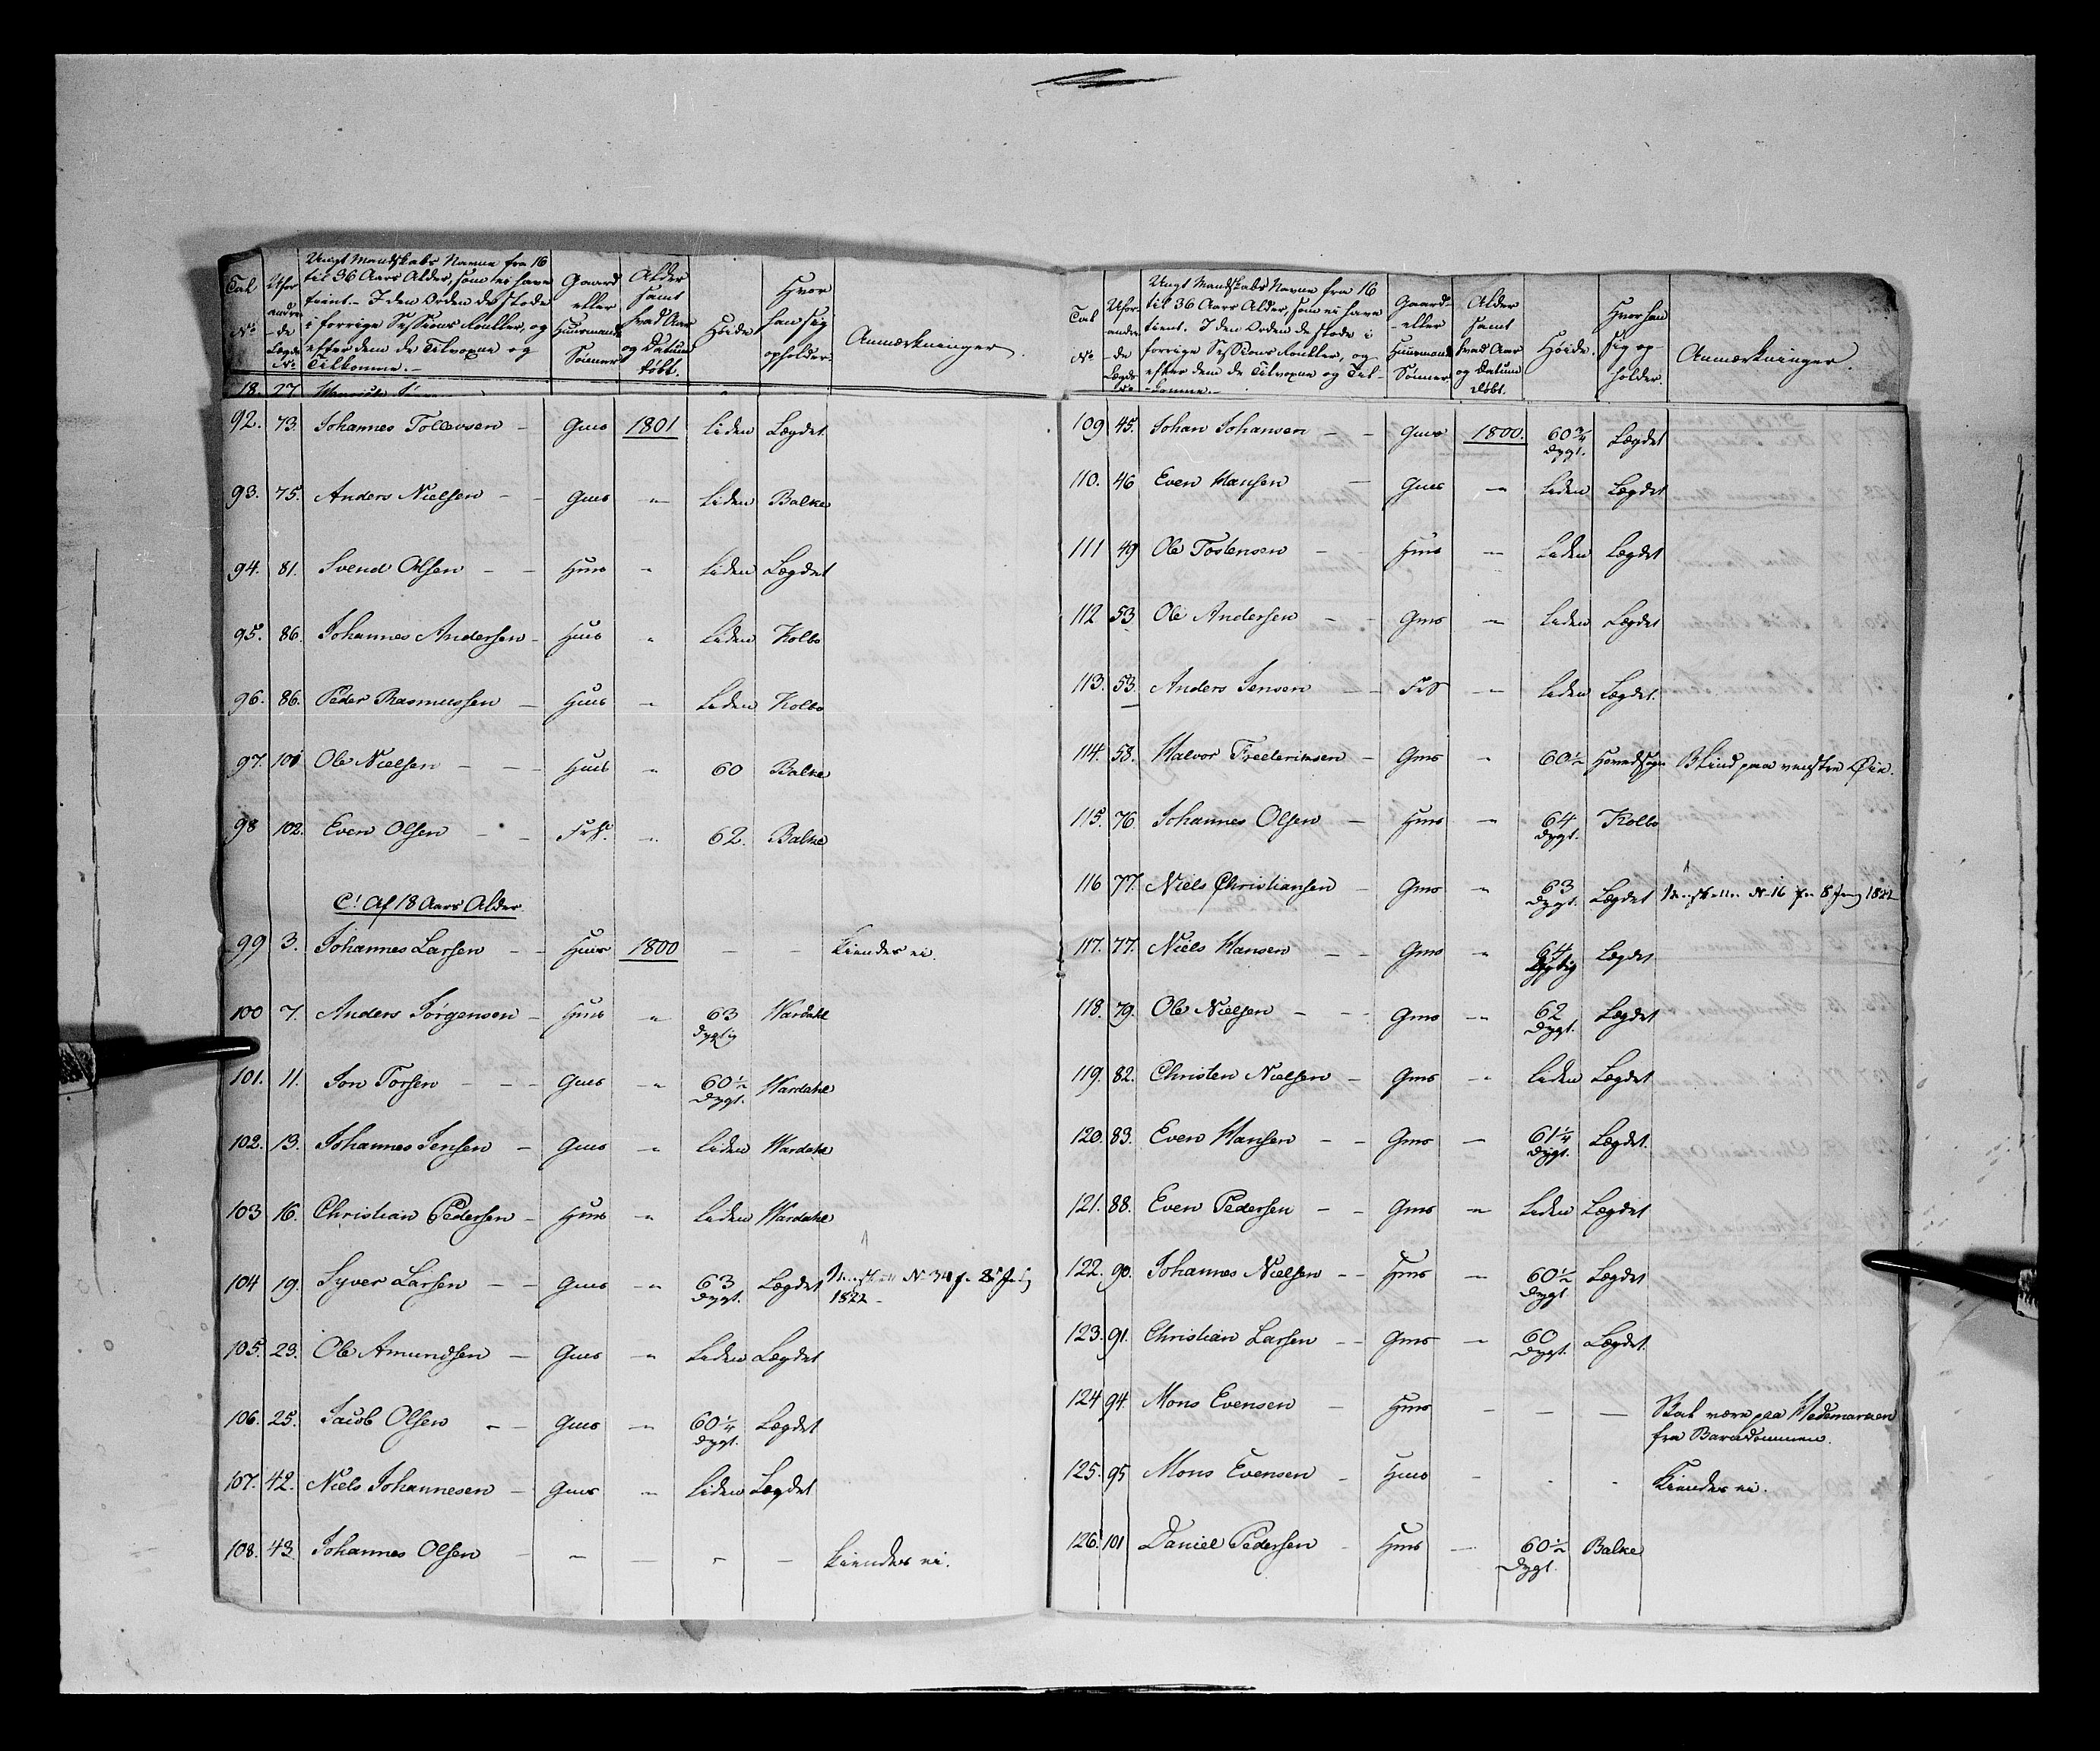 Tal No
Ufor andre de Lægds No
Ungt Mandskabs Navne fra 16
til 36 Aars Alder, som ei have
tient. I den Orden de stode
i forrige Sessions Rouller, og
efter dem de Tilvoxne og
Tilkomne.
Gaard eller Huusmands Sønner
Alder samt hvad Aar og Datum døbt.
Høide
Hvor han sig opholder.
Anmærkninger.
18. 27
92. 73. Johannes Tollevsen - Gms 1801 liden Lægdet.
93. 75. Anders Nielsen - - Gms " liden Balke
94. 81. Svend Olsen - - Hms " liden Lægdet
95. 86. Johannes Andersen - Hms " liden Kolbo
96. 86. Peder Rasmussen - Hms " liden Kolbo
97. 101 Ole Nielsen - - Hms " 60 Balke
98 102. Even Olsen - - FrS. " 62. Balke
C! Af 18 Aars Alder.
99 3. Johannes Larsen - - Hms 1800 - - kiendes ei.
100 7. Anders Jørgensen - Hms " 63 Dygtig Wardahl
101. 11. Jon Torsen - - - Gms " 60½ Dygt. Wardahl
102. 13. Johannes Jensen - Gms " liden Wardahl
103 16. Christian Pedersen - Hms " liden Wardahl
104 19. Syver Larsen - - Gms " 63 Dygt. Lægdet No 34 fr 28 July
1822 -
105. 23. Ole Amundsen - Gms " liden Lægdet
106. 25. Jacob Olsen - Gms " 60¼ Dygt. Lægdet
107. 42. Niels Johannesen - Gms " liden Lægdet
108. 43. Johannes Olsen - - - - - kiendes ei.
Tal No
Ufor andre de Lægds No
Ungt Mandskabs Navne fra 16
til 36 Aars Alder, som ei have
tient. I den Orden de stode i
forrige Sessions Rouller, og
efter dem de Tilvoxne og Til-
komne.
Gaard- eller Huusmands Sønner
Alder samt hvad Aar og Datum døbt.
Høide.
Hvor han sig op- holder.
Anmærkninger.
109 45. Johan Johansen - - Gms 1800. 60¾ Dygt. Lægdet
110. 46 Even Hansen - Gms " liden Lægdet
111 49 Ole Tostensen - - Hms " liden Lægdet
112 53 Ole Andersen - - Gms " liden Lægdet
113. 53. Anders Jensen - - FrS " liden Lægdet.
114. 58. Halvor Frederiksen - Gms " 60½ Hovedsogn Blind paa venstre Øie.
115. 76. Johannes Olsen - Hms " 64 Dygt. Kolbo
116 77. Niels Christiansen - Gms " 63 Dygt. Lægdet No 16 fr 8 1822
117. 77. Niels Hansen - - Gms " 64 Dygtig Lægdet
118. 79. Ole Nielsen - - - Gms " 62 Dygt. Lægdet
119. 82. Christen Nielsen - Gms " liden Lægdet
120. 83. Even Hansen - - Gms - 61¼ Dygt. Lægdet.
121. 88. Even Pedersen - - Gms " liden Lægdet
122. 90. Johannes Nielsen - - Hms - 60½ Dygt Lægdet
123. 91. Christian Larsen - - Gms " 60 Dygt. Lægdet.
124 94. Mons Evensen - Hms - - - Skal være paa Hedemarken
fra Barndommen.
125. 95 Mons Evensen - Hms - - - Kiendes ei.
126. 101 Daniel Pedersen - Hms - 60½ Dygt. Balke